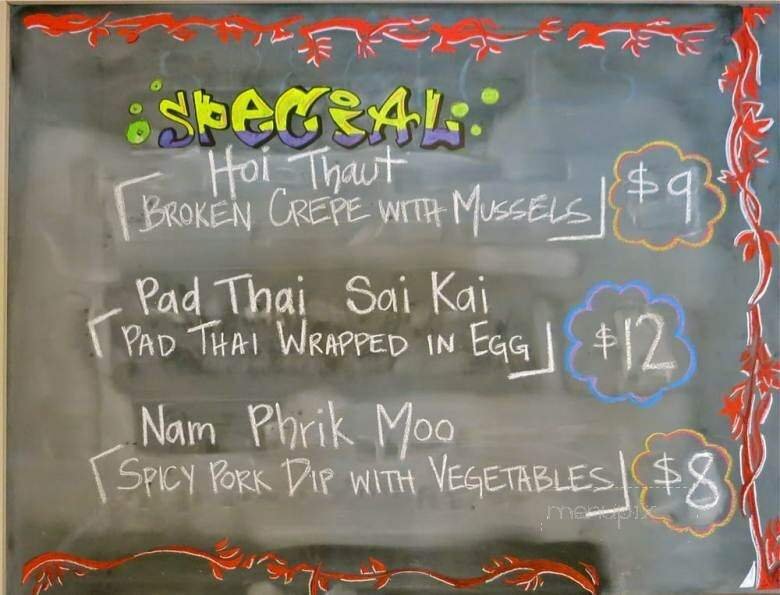 SPECiAL
Hoi Thaut
BROKEN CREPE WITH MUSSELS
$9
Pad Thai Sai Kai
PAD THAI WRAPPED IN EGG
$12
Nam Phrik Moo
SPICY PORK DIP WITH VEGETABLES
$8
menupix